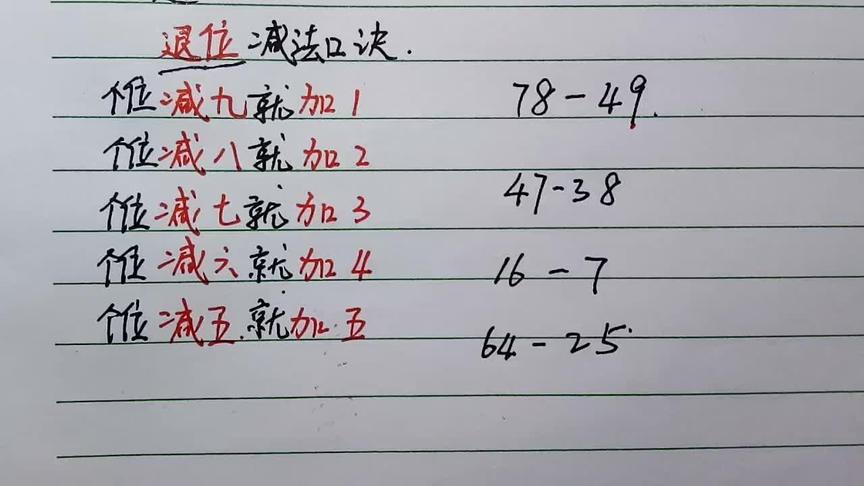 退位减法口诀.
个位减九就加1 78-49.
个位减八就加2
个位减七就加3 47-38
个位减六就加4 16-7
个位减五.就加.五 64-25